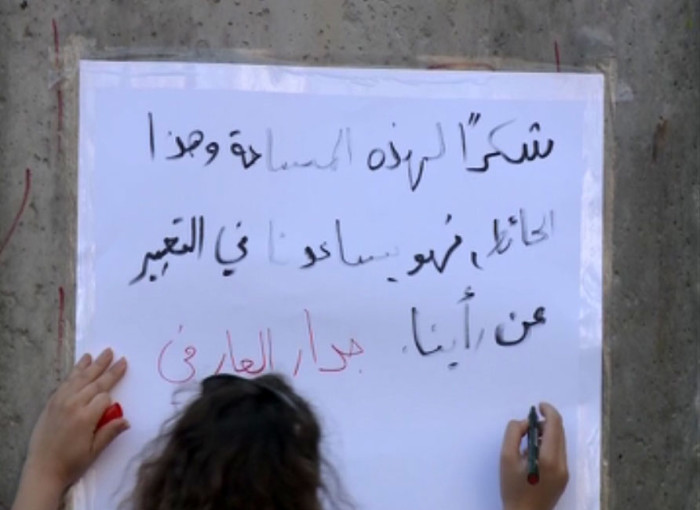 شكرًا لهذه المساحة وهذا
الحائط، فهو يساعدنا في التعبير
عن رأينا. جدار العار في